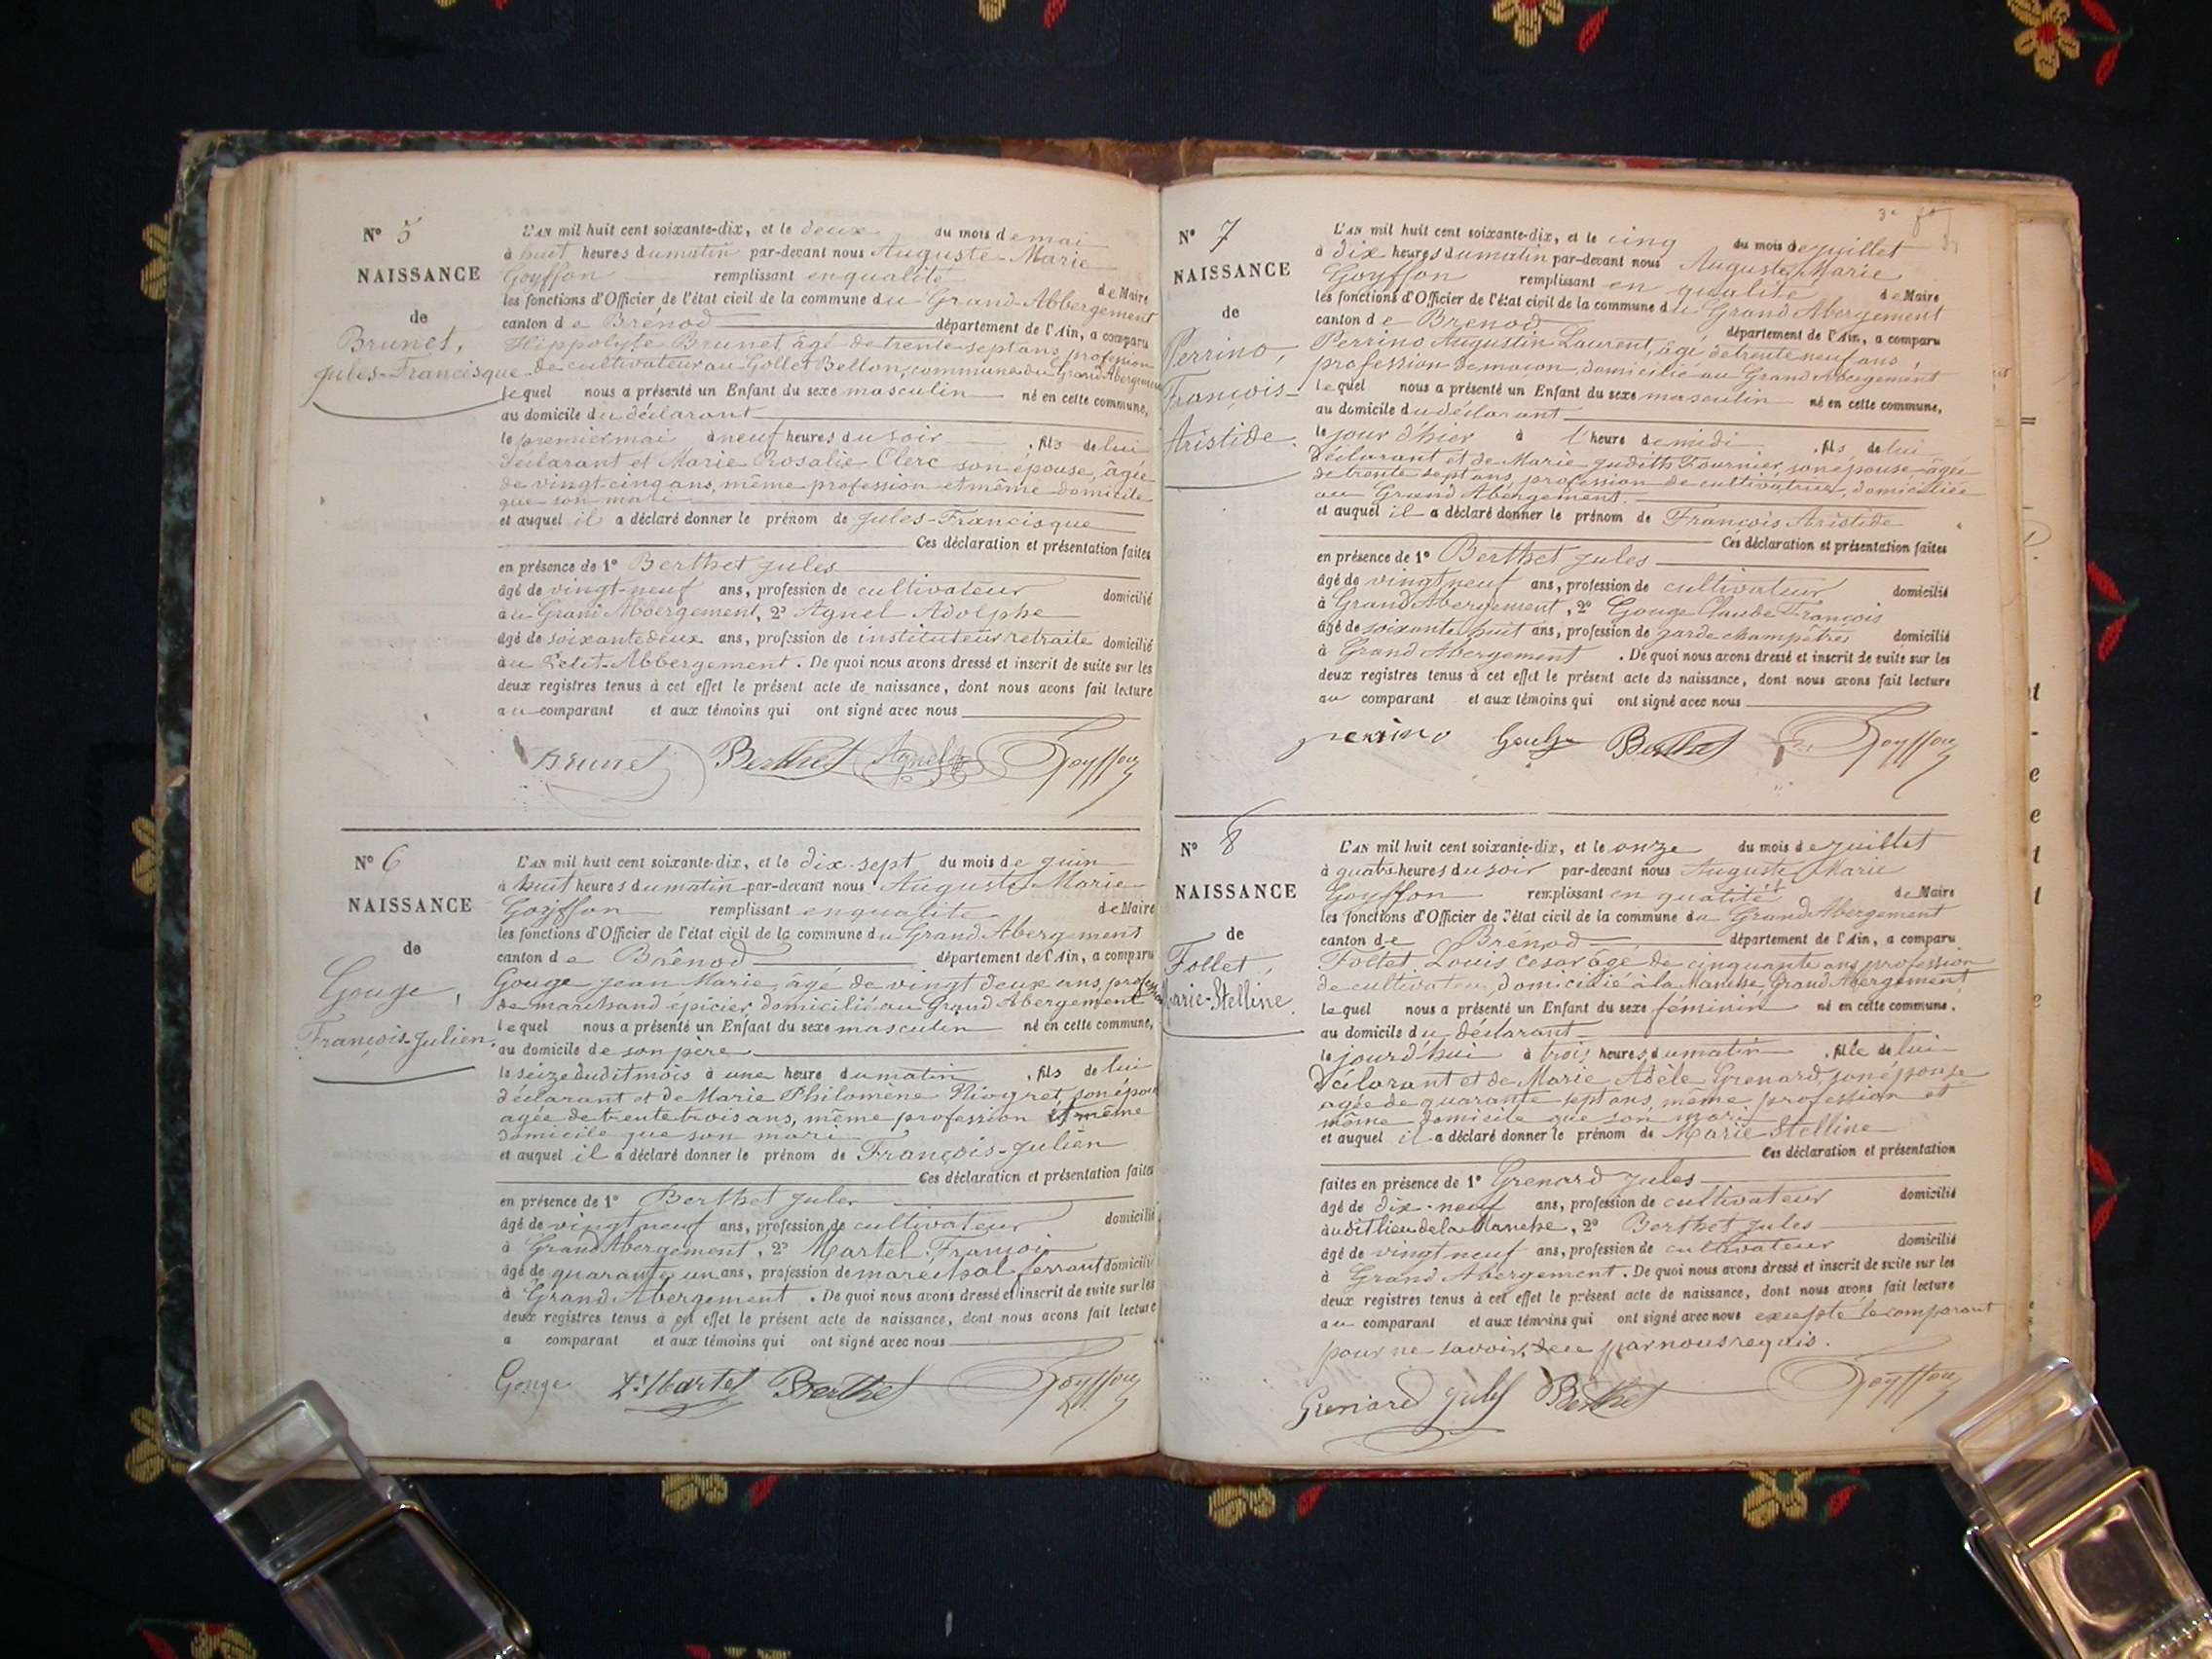 N° 5
NAISSANCE
de
Brunet,
Jules-Francisque
L'AN mil huit cent soixante-dix, et le deux du mois de mai
à huit heures du matin par-devant nous Auguste Marie
Goyffon remplissant en qualité de Maire
les fonctions d'Officier de l'état civil de la commune du Grand-Abbergement
canton de Brénod département de l'Ain, a comparu
Hippolyte Brunet, âgé de trente sept ans, profession
de cultivateur au Gollet Bellon, commune du Grand Abergement
lequel nous a présenté un Enfant du sexe masculin né en cette commune,
au domicile du déclarant
le premier mai à neuf heures du soir, fils de lui
déclarant et Marie Rosalie Clerc son épouse, âgée
de vingt-cinq ans, même profession et même domicile
que son mari
et auquel il a déclaré donner le prénom de Jules-Francisque
Ces déclaration et présentation faites
en présence de 1° Berthet Jules
âgé de vingt-neuf ans, profession de cultivateur domicilié
au Grand Abbergement, 2° Agnel Adolphe
âgé de soixante deux ans, profession de instituteur retraite domicilié
au Petit-Abbergement. De quoi nous avons dressé et inscrit de suite sur les
deux registres tenus à cet effet le présent acte de naissance, dont nous avons fait lecture
au comparant et aux témoins qui ont signé avec nous
Brunet Berthet Agnel Goyffon
N° 6
NAISSANCE
de
Gouge,
François-Julien.
L'AN mil huit cent soixante-dix, et le dix-sept du mois de juin
à huit heures du matin par-devant nous Auguste Marie
Goyffon remplissant en qualité de Maire
les fonctions d'Officier de l'état civil de la commune du Grand Abergement
canton de Brénod département de l'Ain, a comparu
Gouge Jean Marie, âgé de vingt deux ans, profession
de marchand épicier, domicilié au Grand Abergement
lequel nous a présenté un Enfant du sexe masculin né en cette commune,
au domicile de son père
le seize dudit mois à une heure du matin, fils de lui
déclarant et de Marie Philomène Niogret, son épouse
agée de trente trois ans, même profession et même
domicile que son mari
et auquel il a déclaré donner le prénom de François-Julien
Ces déclaration et présentation faites
en présence de 1° Berthet Jules
âgé de vingt neuf ans, profession de cultivateur domicilié
à Grand Abergement, 2° Martel François
âgé de quarante un ans, profession de maréchal ferrant domicilié
à Grand Abergement. De quoi nous avons dressé et inscrit de suite sur les
deux registres tenus à cet effet le présent acte de naissance, dont nous avons fait lecture
a comparant et aux témoins qui ont signé avec nous
Gouge Martel Berthet Goyffon
N° 7
NAISSANCE
de
Perrino,
François-
Aristide.
L'AN mil huit cent soixante-dix, et le cinq du mois de juillet
à dix heures du matin par-devant nous Auguste Marie
Goyffon remplissant en qualité de Maire
les fonctions d'Officier de l'état civil de la commune du Grand Abergement
canton de Brenod département de l'Ain, a comparu
Perrino Augustin Laurent, âgé de trente neuf ans,
profession de maçon, domicilié au Grand Abergement
lequel nous a présenté un Enfant du sexe masculin né en cette commune,
au domicile du déclarant
le jour d'hier à l'heure de midi, fils de lui
Déclarant et de Marie Judith Fournier, son épouse âgée
de trente sept ans, profession de cultivatrice, domiciliée
au Grand Abergement.
et auquel il a déclaré donner le prénom de François Aristide
Ces déclaration et présentation faites
en présence de 1° Berthet Jules
âgé de vingt neuf ans, profession de cultivateur domicilié
à Grand Abergement, 2° Gouge Claude François
âgé de soixante huit ans, profession de garde champêtre domicilié
à Grand Abergement. De quoi nous avons dressé et inscrit de suite sur les
deux registres tenus à cet effet le présent acte de naissance, dont nous avons fait lecture
au comparant et aux témoins qui ont signé avec nous
perrino Gouge Berthet Goyffon
N° 8
NAISSANCE
de
Follet,
Marie-Stelline.
L'AN mil huit cent soixante-dix, et le onze du mois de juillet
à quatre heures du soir par-devant nous Auguste Marie
Goyffon remplissant en qualité de Maire
les fonctions d'Officier de l'état civil de la commune du Grand Abergement
canton de Brénod département de l'Ain, a comparu
Follet Louis Cesar âgé de cinquante ans profession
de cultivateur, domicilié à la Manche, Grand Abergement
lequel nous a présenté un Enfant du sexe féminin né en cette commune,
au domicile du déclarant
le jourd'hui à trois heures du matin, fille de lui
Déclarant et de Marie Adèle Grenard, son épouse
agée de quarante sept ans, même profession et
même domicile que son mari
et auquel il a déclaré donner le prénom de Marie Stelline
Ces déclaration et présentation
faites en présence de 1° Grenard Jules
âgé de dix-neuf ans, profession de cultivateur domicilié
audit lieu de la Manche, 2° Berthet Jules
âgé de vingt neuf ans, profession de cultivateur domicilié
à Grand Abergement. De quoi nous avons dressé et inscrit de suite sur les
deux registres tenus à cet effet le présent acte de naissance, dont nous avons fait lecture
au comparant et aux témoins qui ont signé avec nous excepté le comparant
pour ne savoir, de ce par nous requis.
Grenard Jules Berthet Goyffon